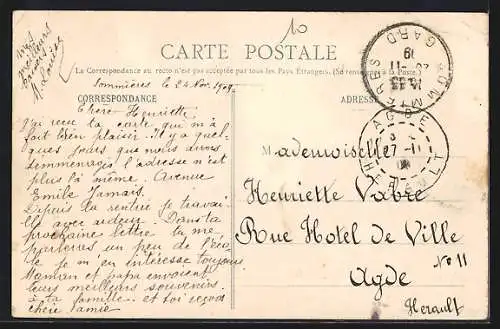 10
mes
meilleurs
baisers
M. Louise
CARTE POSTALE
La Correspondance au recto n'est pas acceptée par tous les Pays Étrangers. (Se renseigner à la Poste.)
CORRESPONDANCE
ADRESSE
Sommières le 24 Nov. 1909
Chère Henriette
j'ai reçu ta carte qui m'a
fait bien plaisir. il y a quel-
ques jours que nous avons
demmenagés l'adresse n'est
plus là même. Avenue
Emile Jamais.
Depuis la rentrée je travail-
le avec ardeur. Dans ta
prochaine lettre tu me
parleras un peu de l'éco-
le je m'en intéresse toujours
Maman et papa envoient
leurs meilleurs souvenirs
à ta famille et toi reçois
chère amie
SOMMIERES
GARD
AGDE
HERAULT
Mademoiselle
Henriette Vabre
Rue Hotel de Ville
No 11
Agde
Herault